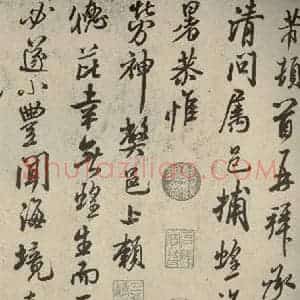 芾頓首再拜承
清問属邑捕蝗
暑恭惟
勞神獘邑上賴
德芘幸無蝗生而
必遂小豐聞海境
shufaziliao.com